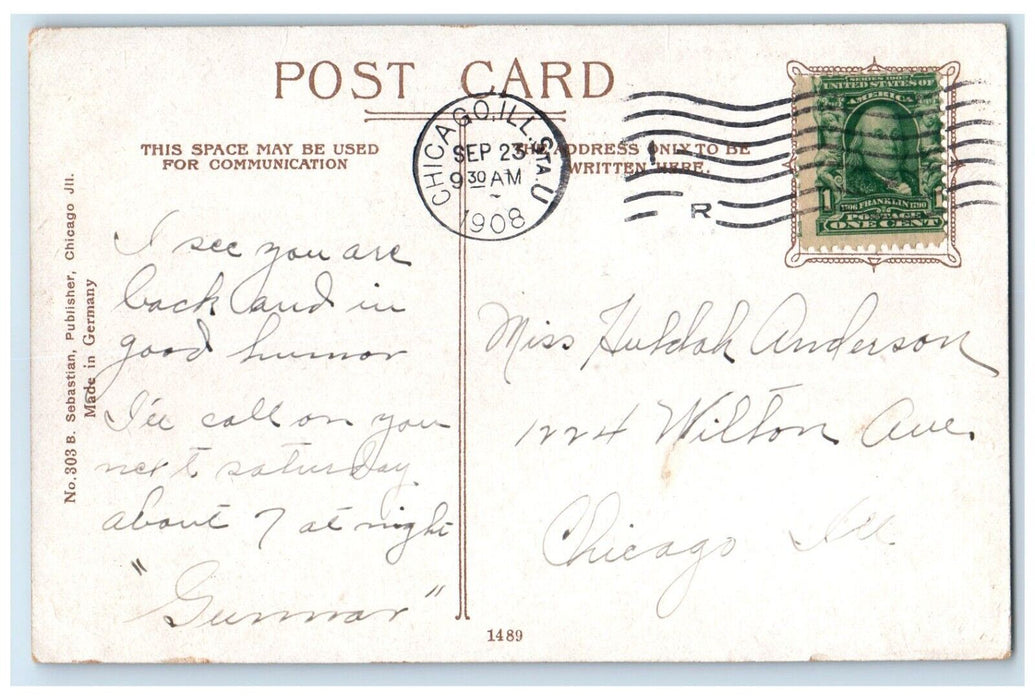 POST CARD
THIS SPACE MAY BE USED
FOR COMMUNICATION
THE ADDRESS ONLY TO BE
WRITTEN HERE.
CHICAGO, ILL. STA. U
SEP 23
9 30 AM
1908
R
SERIES 1902
UNITED STATES OF
AMERICA
1706 FRANKLIN 1790
POSTAGE
1
ONE CENT
No. 303 B. Sebastian, Publisher, Chicago Jll.
Made in Germany
I see you are
back and in
good humor
I'll call on you
next saturday
about 7 at night
"Gunnar"
Miss Huldah Anderson
1224 Wilton Ave.
Chicago Ill
1489